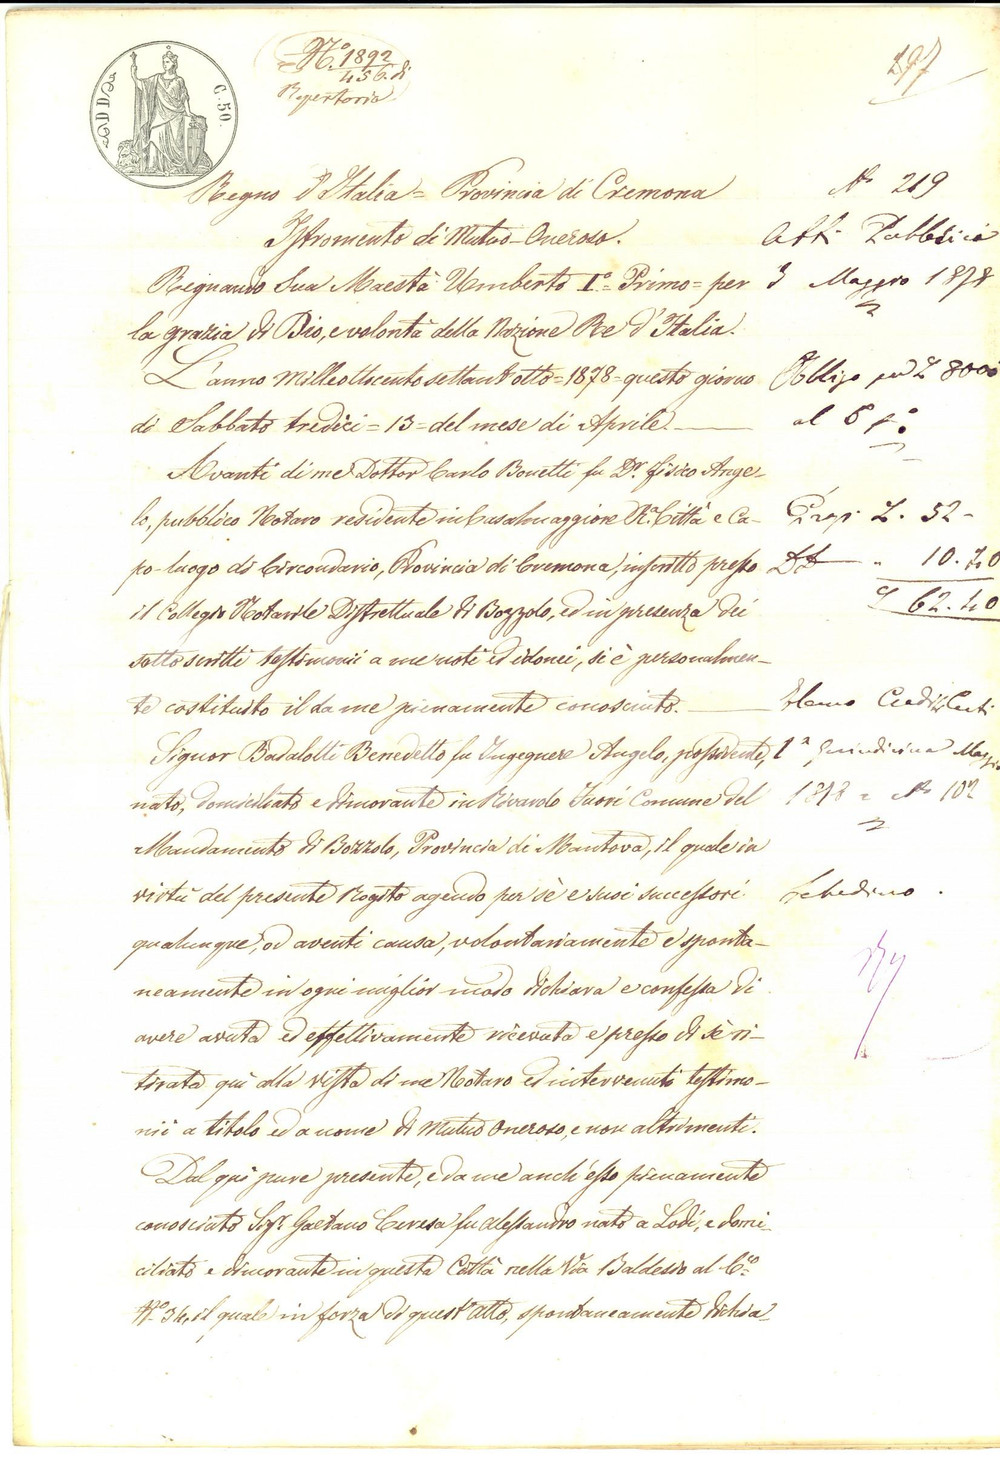 N.° 1892
456. di
Repertorio
197
C. 50.
Regno d'Italia = Provincia di Cremona
Istromento di Mutuo-Oneroso.
Regnando Sua Maestà Umberto I.° = Primo = per
la grazia di Dio, e volontà della Nazione Re d'Italia.
L'anno Milleottocento settant'otto = 1878 = questo giorno
di Sabbato tredici = 13 = del mese di Aprile.
Avanti di me Dottor Carlo Bonetti fu D.r fisico Ange-
lo, pubblico Notaro residente in Casalmaggiore R.a Città e Ca-
po-luogo di Circondario, Provincia di Cremona, inscritto presso
il Collegio Notarile Distrettuale di Bozzolo, ed in presenza dei
sottoscritti testimonii a me noti ed idonei, si è personalmen-
te costituito il da me pienamente conosciuto.
Signor Badalotti Benedetto fu Ingegnere Angelo, possidente,
nato, domiciliato e dimorante in Rivarolo Fuori Comune del
Mandamento di Bozzolo, Provincia di Mantova, il quale in
virtù del presente Rogito agendo per sè e suoi successori
qualunque, od aventi causa, volontariamente e sponta-
neamente in ogni miglior modo dichiara e confessa di
avere avuta ed effettivamente ricevuta e presso di sè ri-
tirata quì alla vista di me Notaro ed intervenuti testimo-
nii a titolo ed a nome di Mutuo Oneroso, e non altrimenti.
Dal quì pure presente, e da me anch'esso pienamente
conosciuto Sig.r Gaetano Ceresa fu Alessandro nato a Lodi, e domi-
ciliato e dimorante in questa Città nella Via Baldesio al C.co
N.° 34, il quale in forza di quest'atto, spontaneamente dichia-
N° 219
Atti Pubblici
3 Maggio 1878
Obbligo per L 8000
al 6 p.°
Prop. L. 52 -
DD " 10.40
L 62.40
Elenco
1a Quindicina Maggio
1878 = N° 102